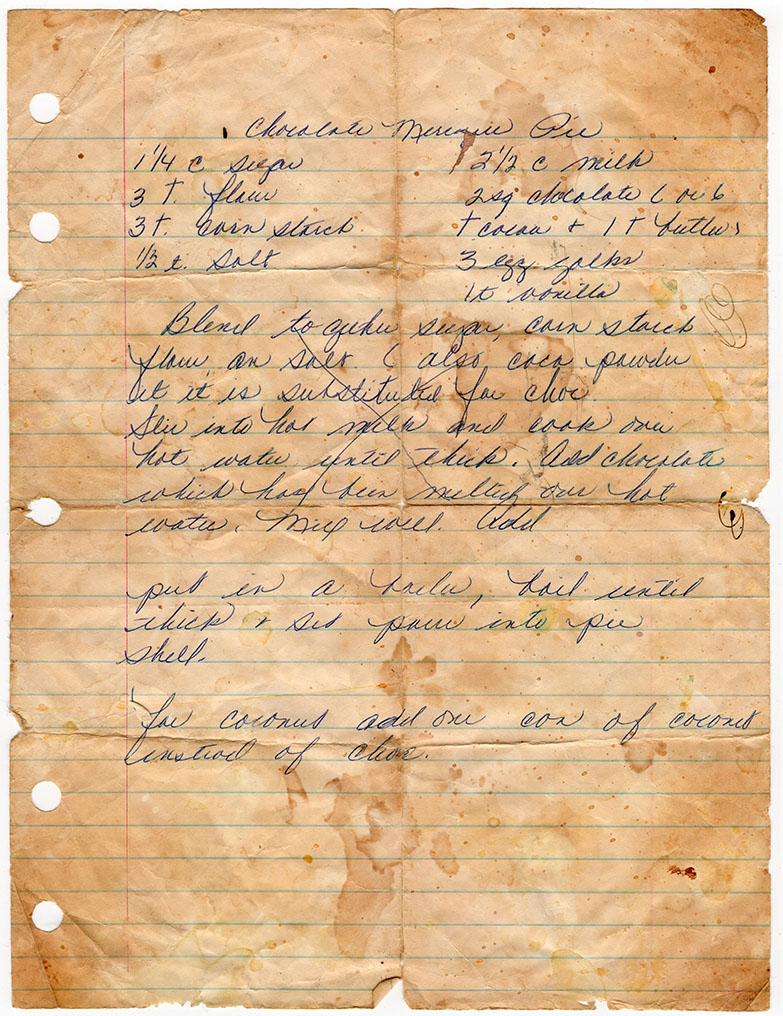 Chocolate Meringue Pie
1 1/4 c sugar
3 T. flour
3 T. corn starch
1/2 t. salt
2 1/2 c milk
2 sq chocolate ( or 6
T cocoa + 1 T butter)
3 egg yolks
1t vanilla
Blend together sugar, corn starch
flour an salt. ( also coco powder
if it is substituted for choc
Stir into hot milk and cook over
hot water until thick. Add chocolate
which has been melted over hot
water. Mix well. Add
put in a boiler, boil until
thick + set pour into pie
shell.
for coconut add one can of coconut
instead of choc.